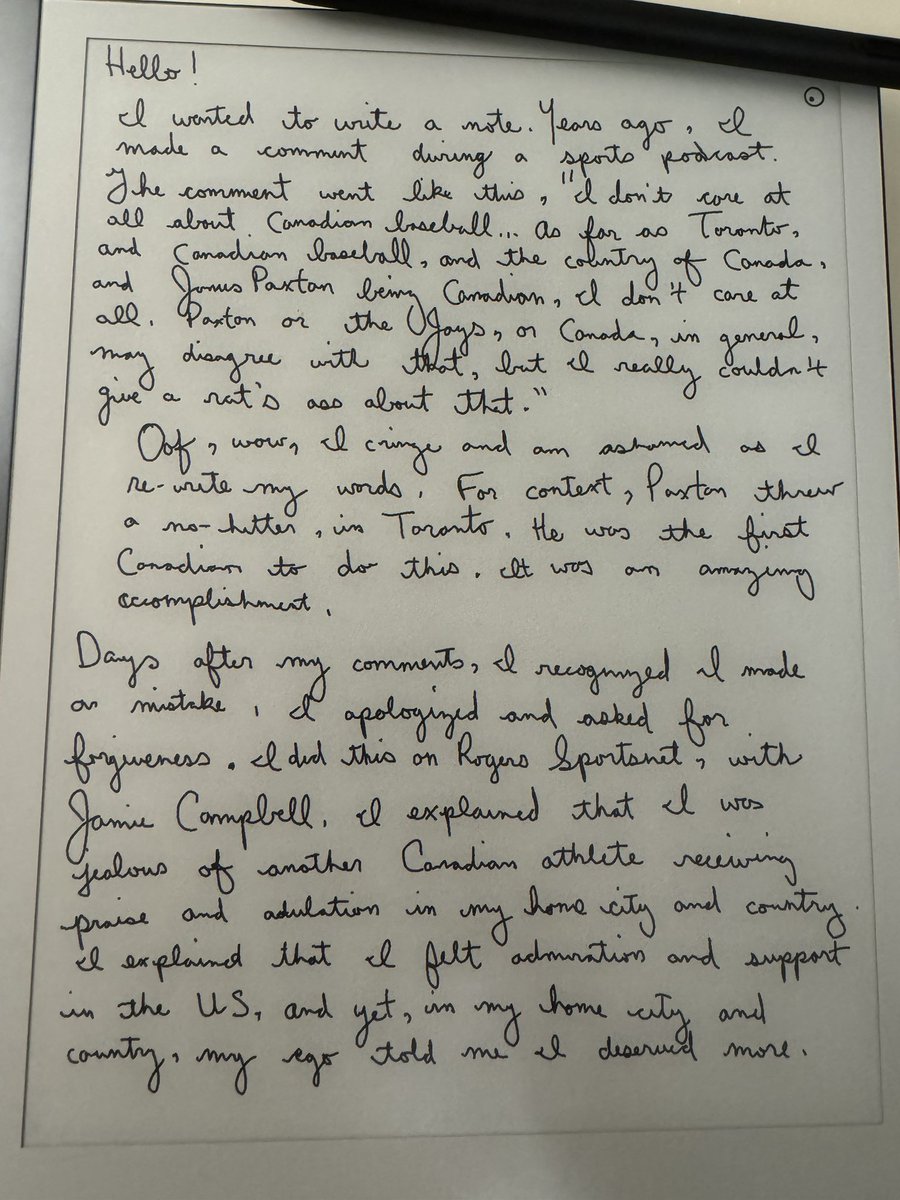 Hello!
I wanted to write a note. Years ago, I
made a comment during a sports podcast.
The comment went like this, "I don't care at
all about Canadian baseball... As far as Toronto,
and Canadian baseball, and the country of Canada,
and James Paxton being Canadian, I don't care at
all. Paxton or the Jays, or Canada, in general,
may disagree with that, but I really couldn't
give a rat's ass about that."
Oof, wow, I cringe and am ashamed as I
re-write my words. For context, Paxton threw
a no-hitter, in Toronto. He was the first
Canadian to do this. It was an amazing
accomplishment.
Days after my comments, I recognized I made
a mistake. I apologized and asked for
forgiveness. I did this on Rogers Sportsnet, with
Jamie Campbell. I explained that I was
jealous of another Canadian athlete receiving
praise and adulation in my home city and country.
I explained that I felt admiration and support
in the US, and yet, in my home city and
country, my ego told me I deserved more.